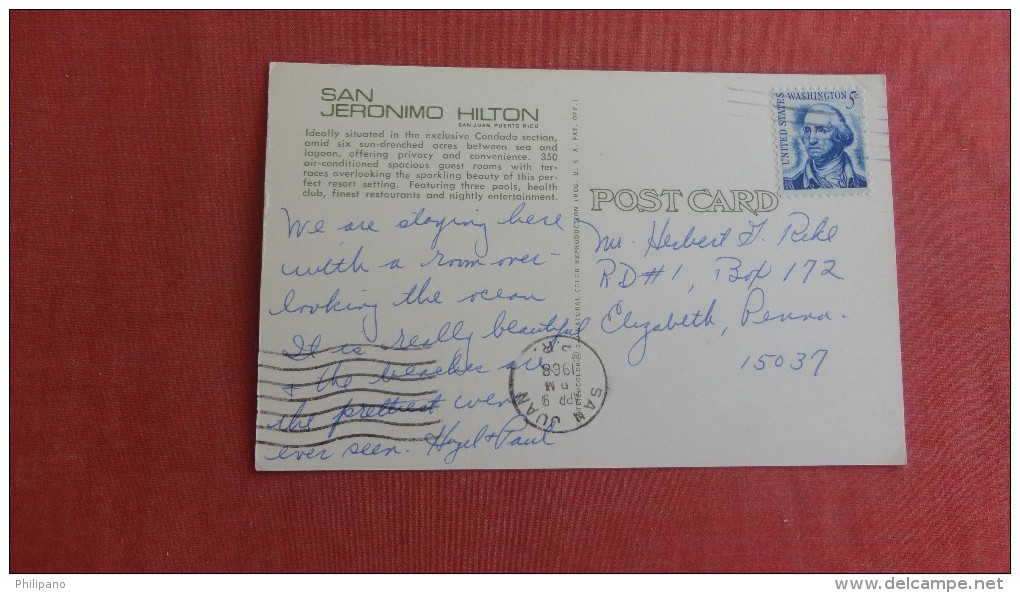 SAN
JERONIMO HILTON
SAN JUAN, PUERTO RICO
Ideally situated in the exclusive Condado section,
amid six sun-drenched acres between sea and
lagoon, offering privacy and convenience. 350
air-conditioned spacious guest rooms with ter-
races overlooking the sparkling beauty of this per-
fect resort setting. Featuring three pools, health
club, finest restaurants and nightly entertainment.
We are staying here
with a room over-
looking the ocean
It is really beautiful
& the beaches are
the prettiest we've
ever seen. Hazel & Paul
NATURAL COLOR REPRODUCTION (REG. U. S. A. PAT. OFF.)
UNITED STATES
WASHINGTON 5c
POST CARD
Mr. Herbert G. Rike
RD#1, Box 172
Elizabeth, Penna.
15037
SAN JUAN
APR 9
PM
1968
P.R.
Philipano
www.delcampe.net